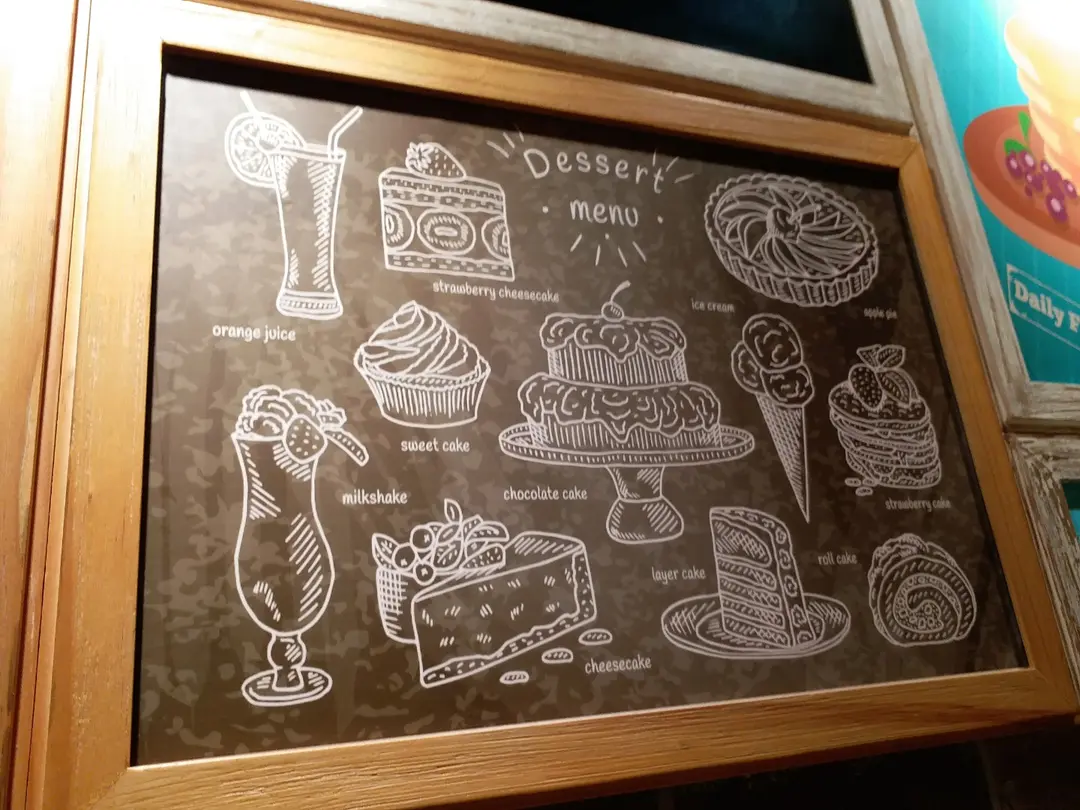 Dessert
menu
orange juice
strawberry cheesecake
ice cream
apple pie
sweet cake
milkshake
chocolate cake
strawberry cake
layer cake
roll cake
cheesecake
Daily